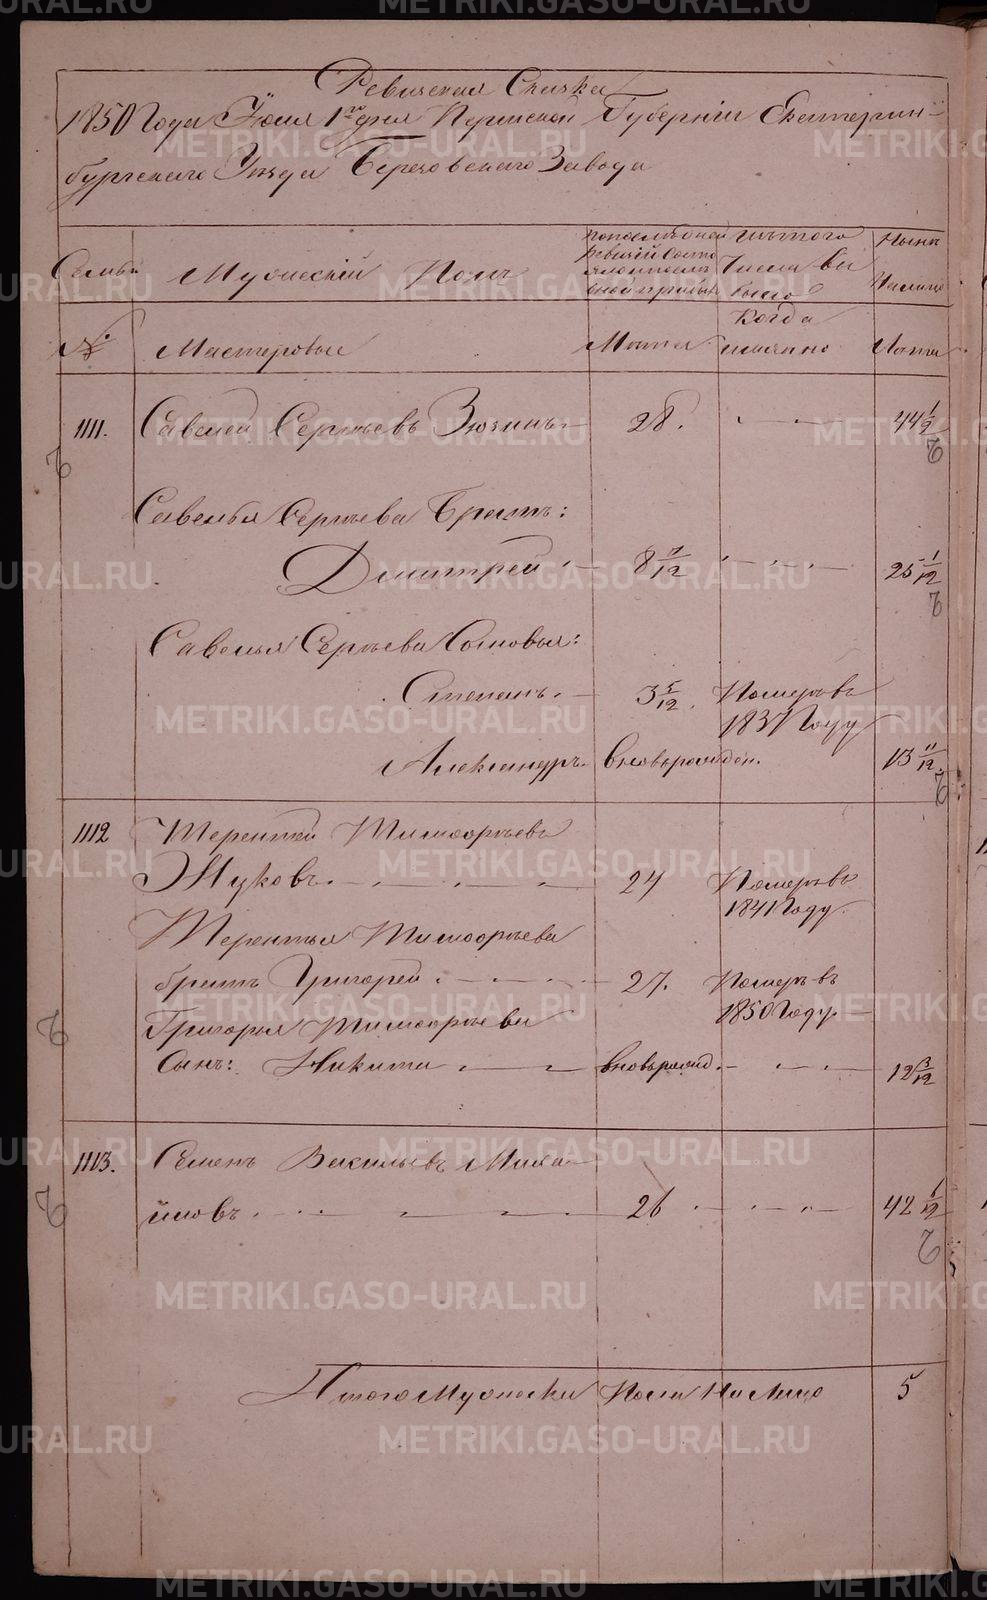 Ревизская Сказка
1850 Года Июля 1го дня Пермской Губернии Екатерин-
бургскаго Уезда Березовскаго Завода
Семьи
Мужеский Полъ
По последней
ревизии состо
яло и после
оной прибыло
Изъ того
Числа вы
было
Ныне
На лицо
№
Мастеровые
Лета
Когда
именно
Лета
1111. Савелей Сергеевъ Зюзинъ 28. 44 1/2
Савелья Сергеева Братъ:
Дмитрей 8 7/12 25 1/12
Савелья Сергеева Сыновья:
Степанъ 3 5/12. Померъ въ
1837 Году
Александръ вновьрожден. 13 11/12
1112 Терентей Тимофеевъ
Жуковъ 24 Померъ въ
1841 Году.
Терентья Тимофеева
братъ Григорей 27. Померъ въ
1850 Году.
Григорья Тимофеева
Сынъ: Никита вновьрожд. 12 3/12
1113. Семенъ Васильевъ Миха-
йловъ 26 42 6/12
Итого Мужеска Пола На Лицо 5
METRIKI.GASO-URAL.RU